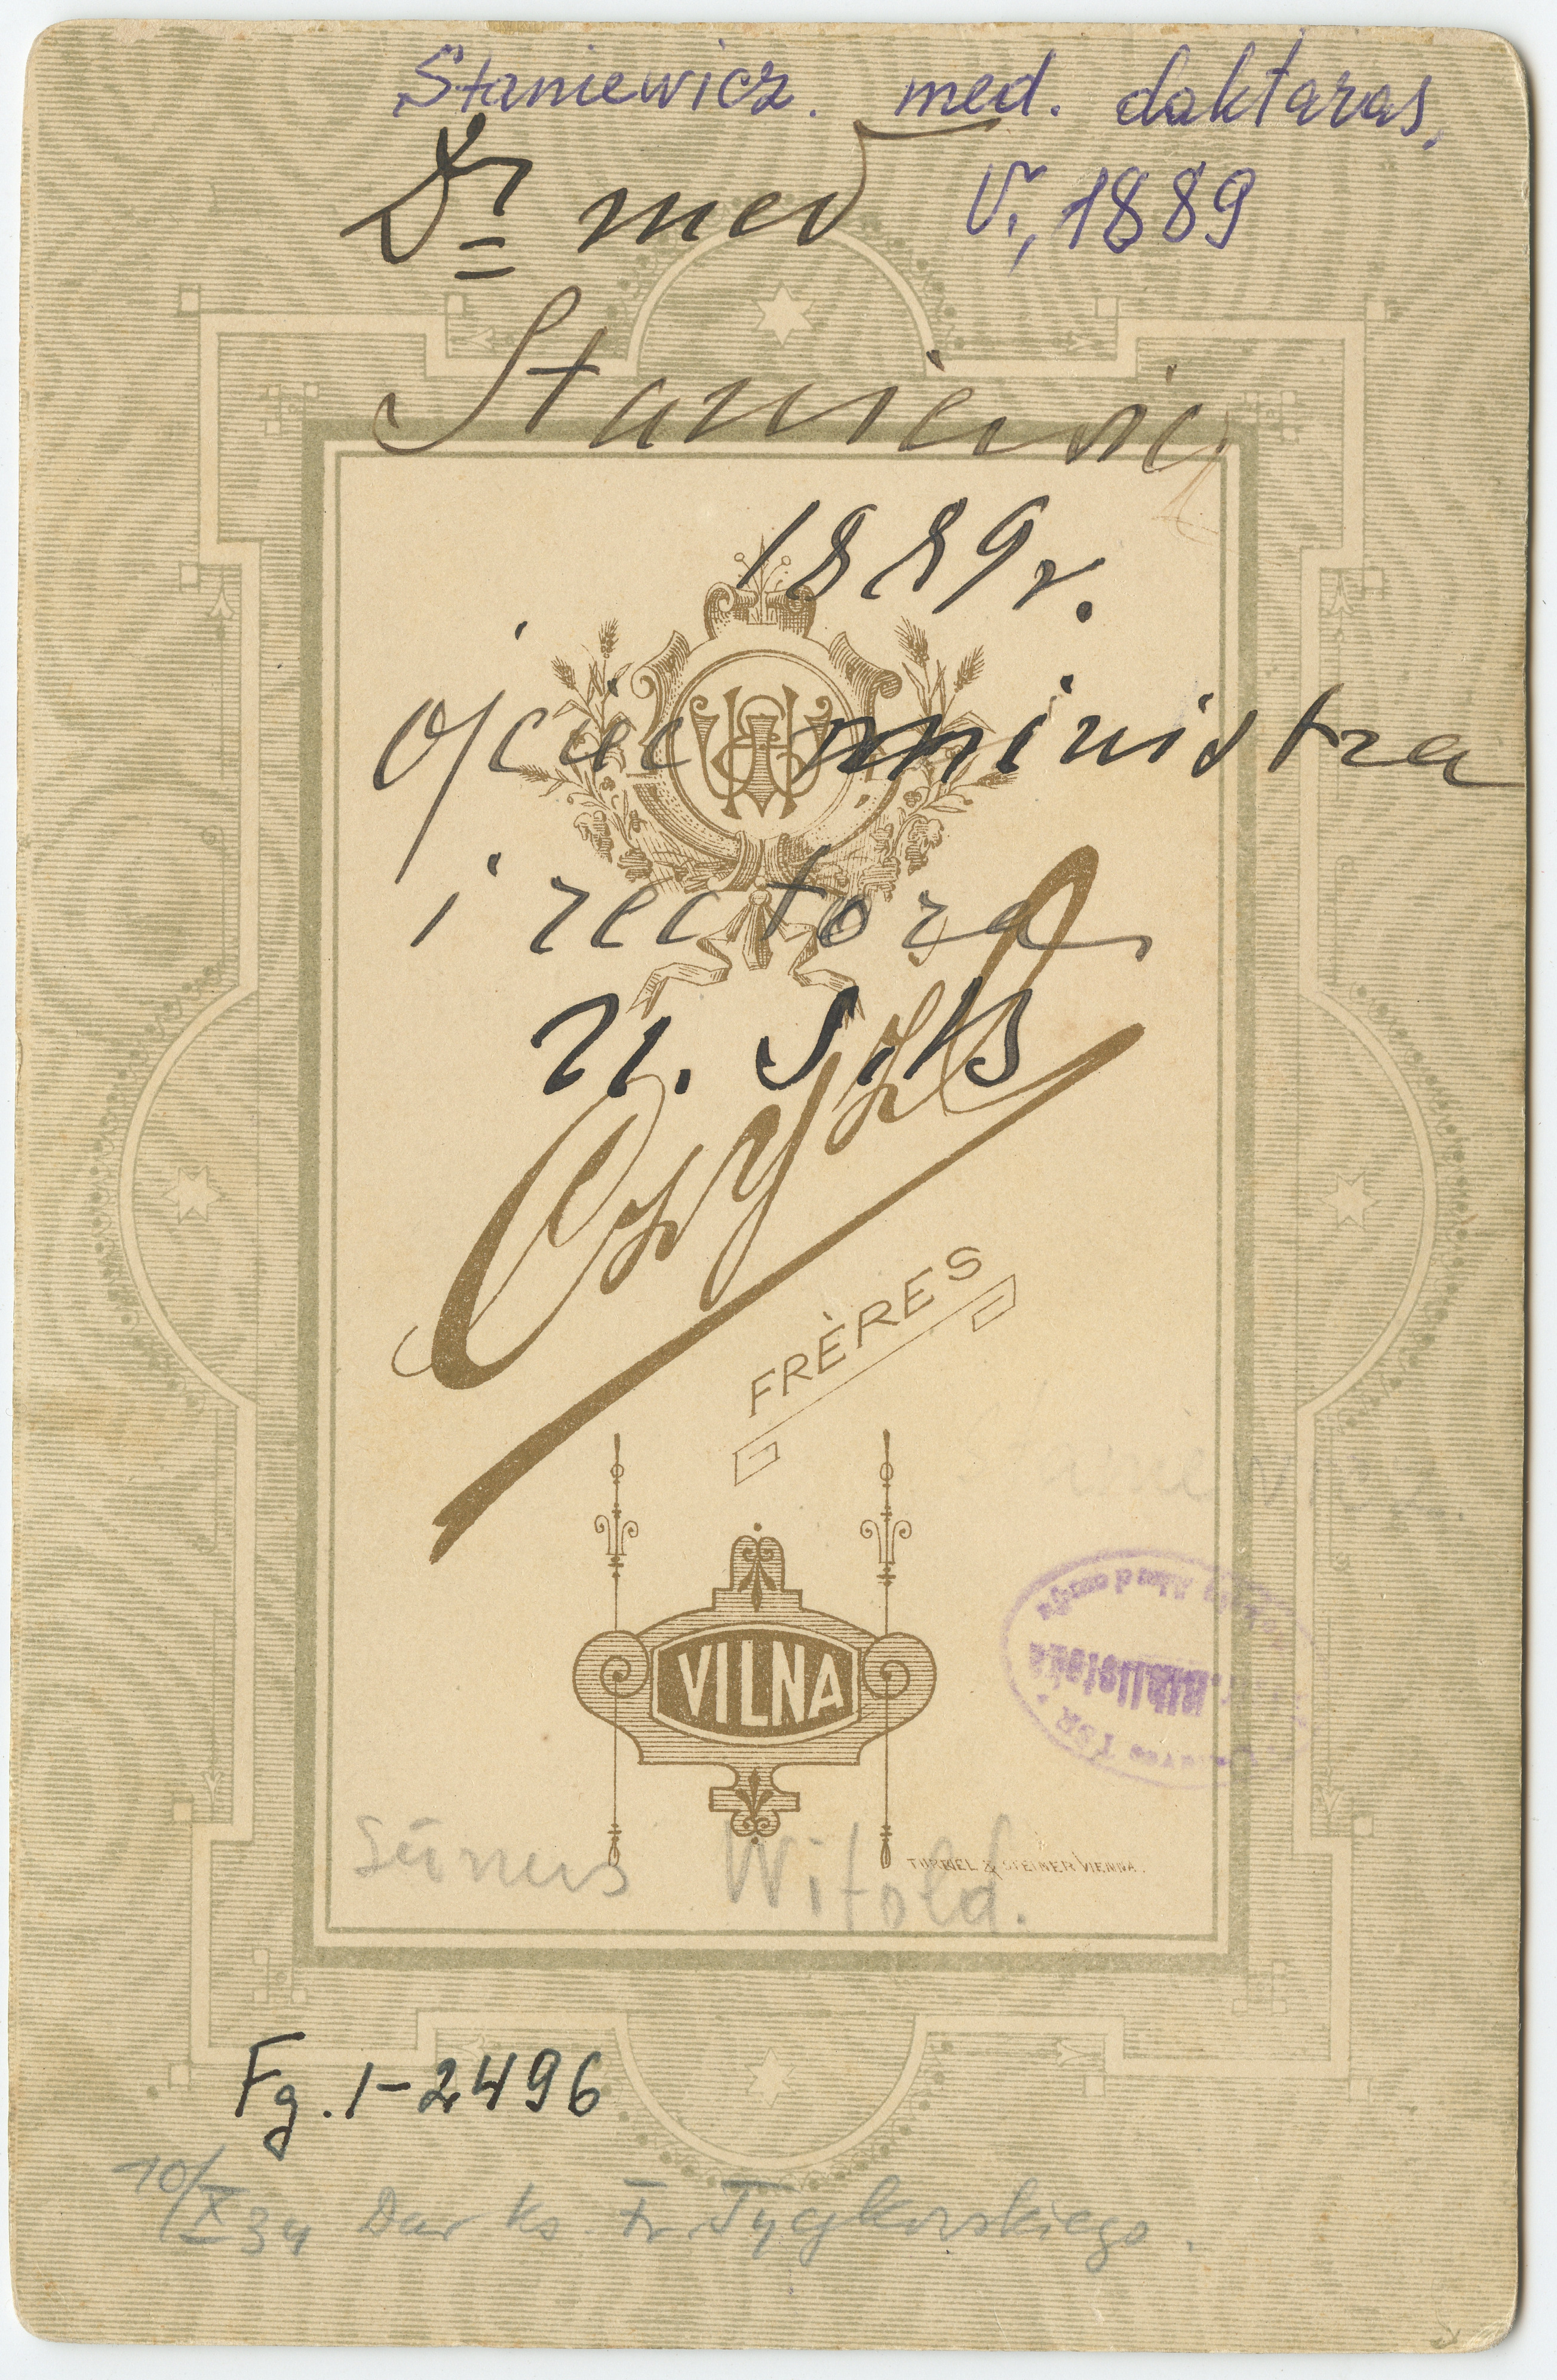 Staniewicz. med. daktaras,
V., 1889
Dr med
Staniewicz
1889 r.
ojciec ministra
i rectora
U. S. B
Czyż
FRÈRES
VILNA
Sūnus Witold.
TÜRKEL & STEINER VIENNA.
Fg. 1-2496
10/X 34 Dar ks. Fr. Tyczkowskiego.